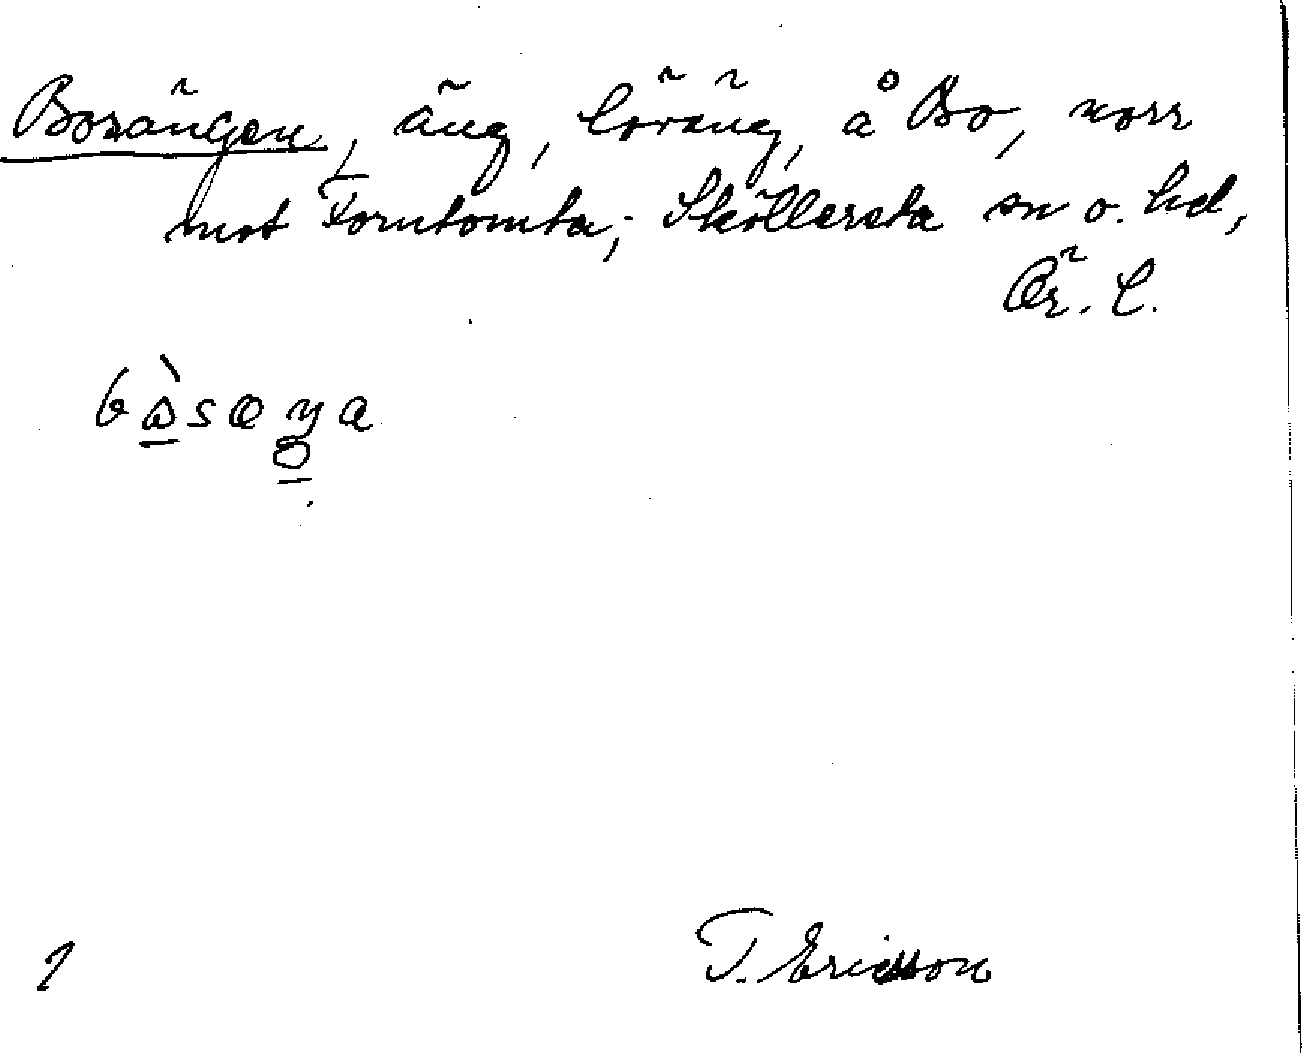 Bosängen, äng, löväng, å Bo, norr
mot Torntomta; Sköllersta sn o. hd,
Ör. l.
T. Ericsson